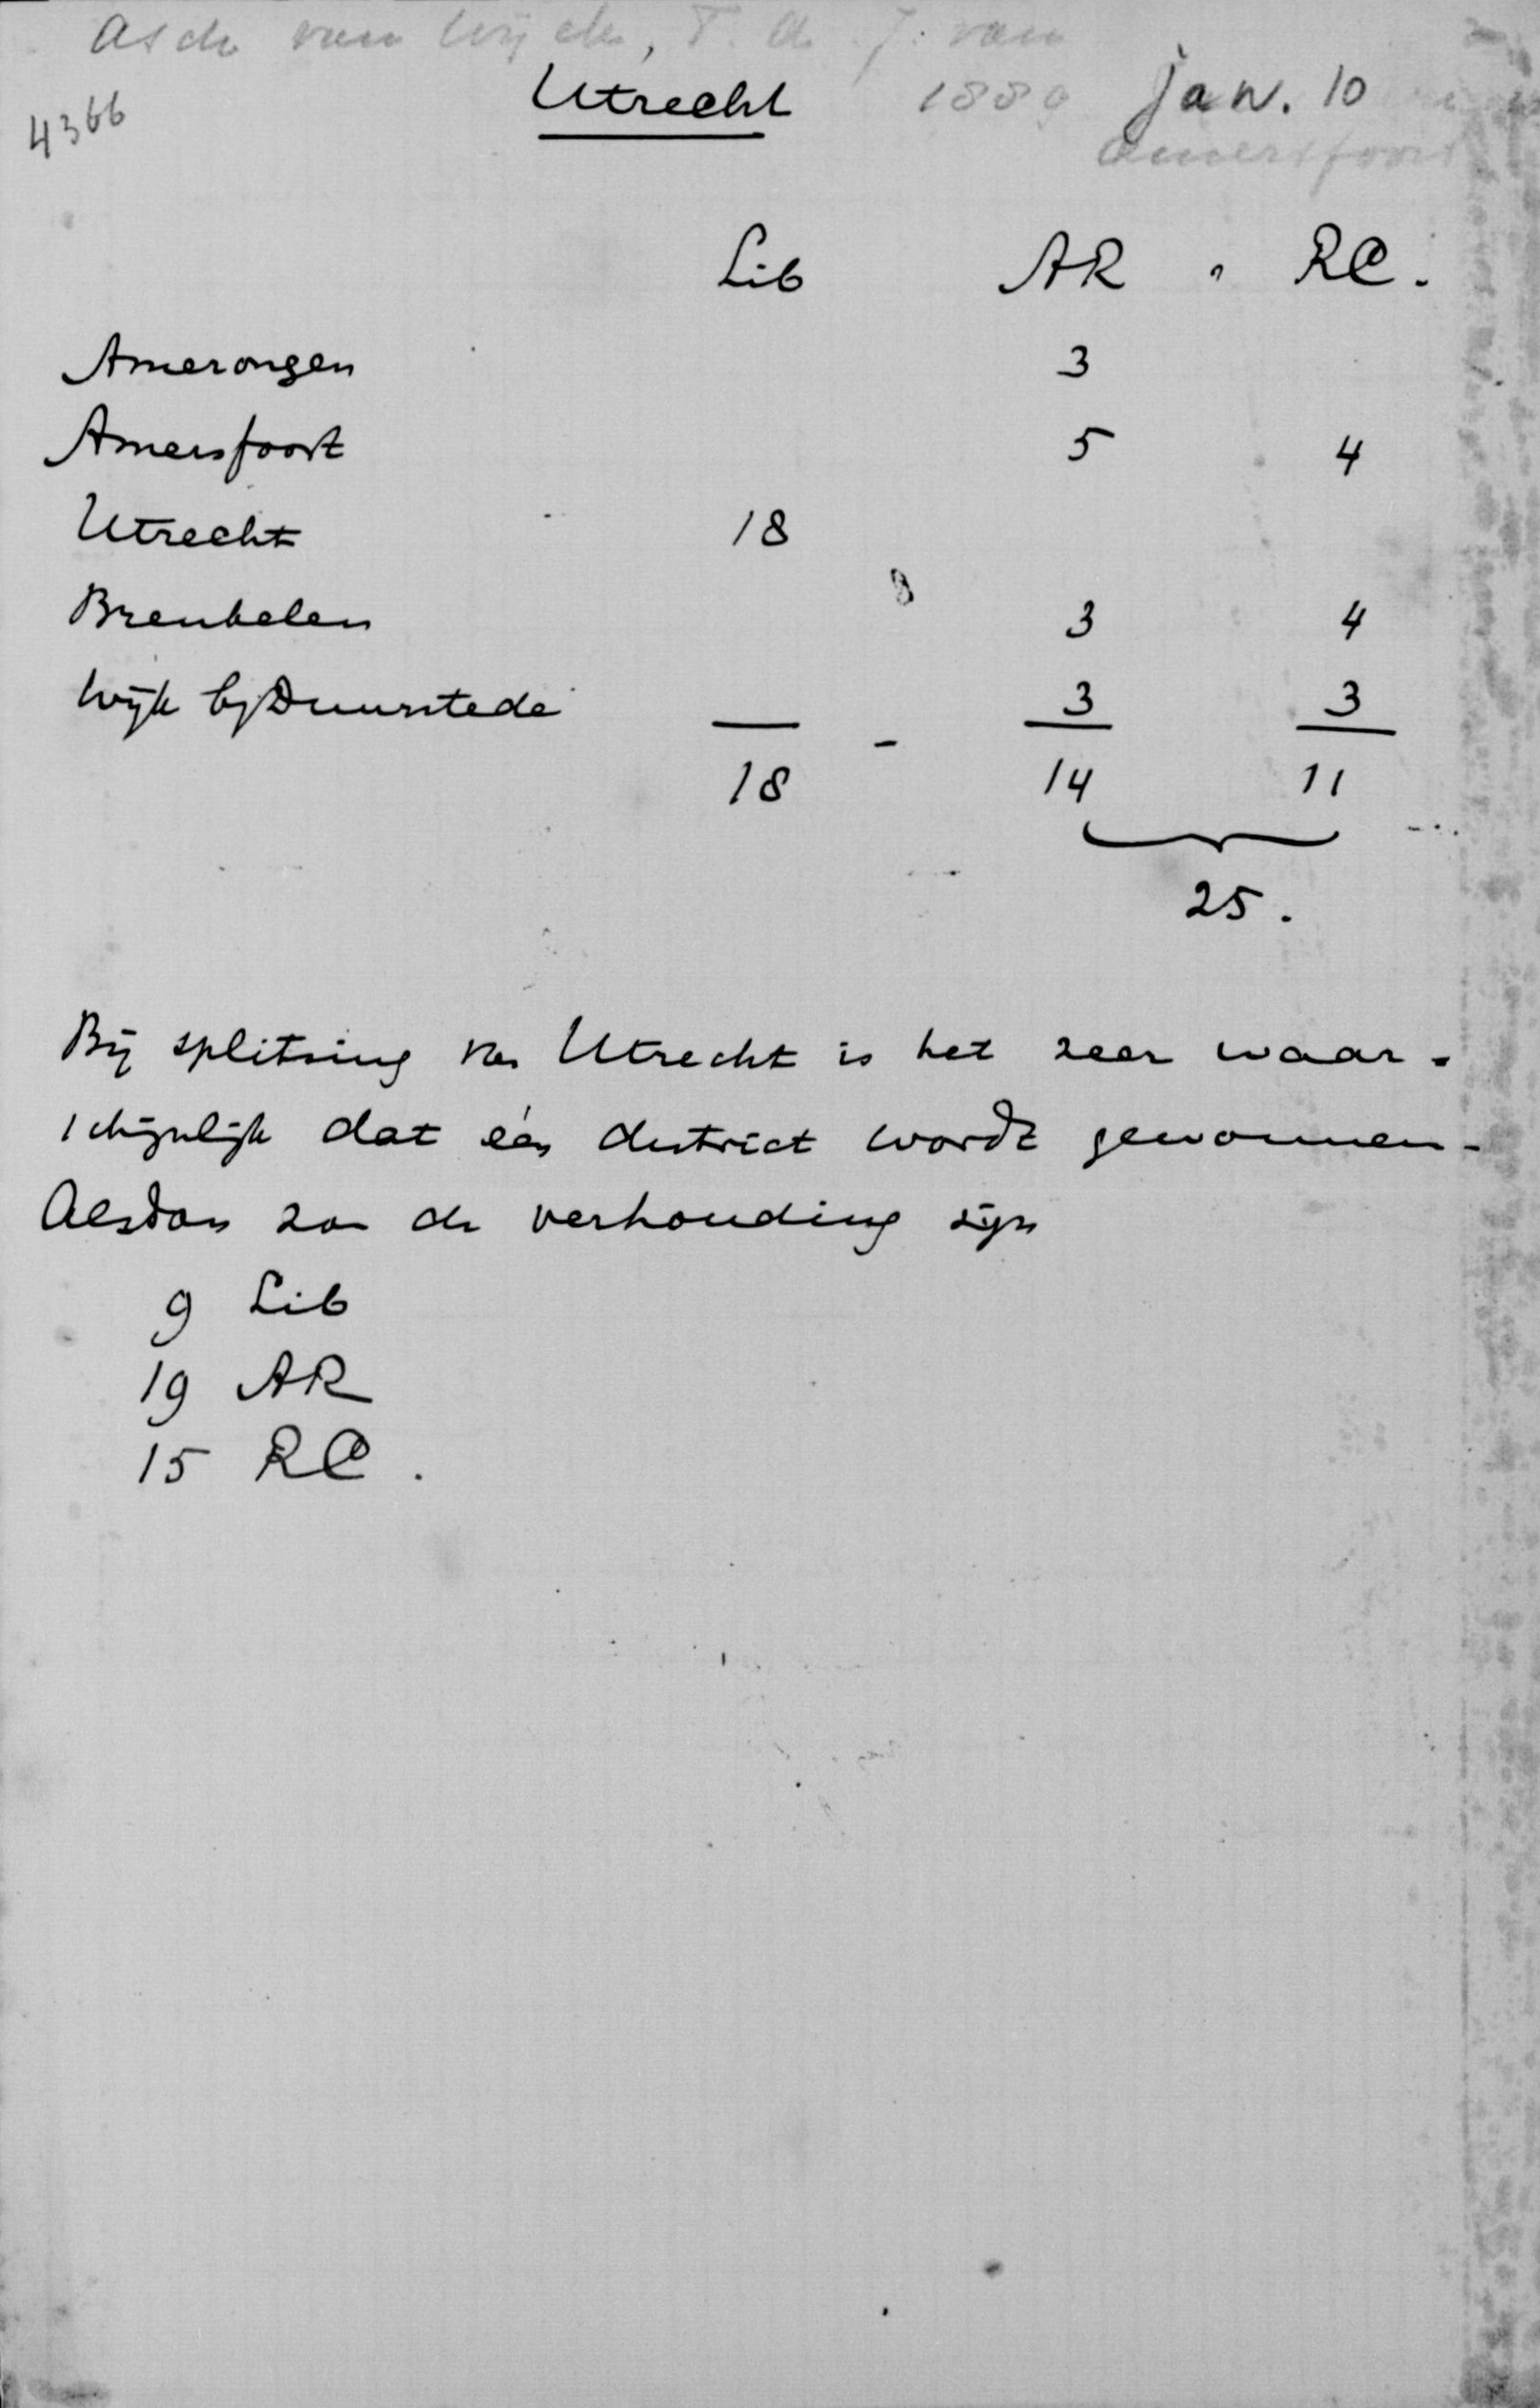 Asch van Wijck, T. A. J. van
4366 Utrecht 1889 jan. 10
Amersfoort
Lib AR RC.
Amerongen 3
Amersfoort 5 4
Utrecht 18
Breukelen 3 4
Wijk bij Duurstede 3 3
18 - 14 11
25.
Bij splitsing van Utrecht is het zeer waar-
schijnlijk dat één district wordt gewonnen-
Alsdan zou de verhouding zijn
9 Lib
19 AR
15 RC.